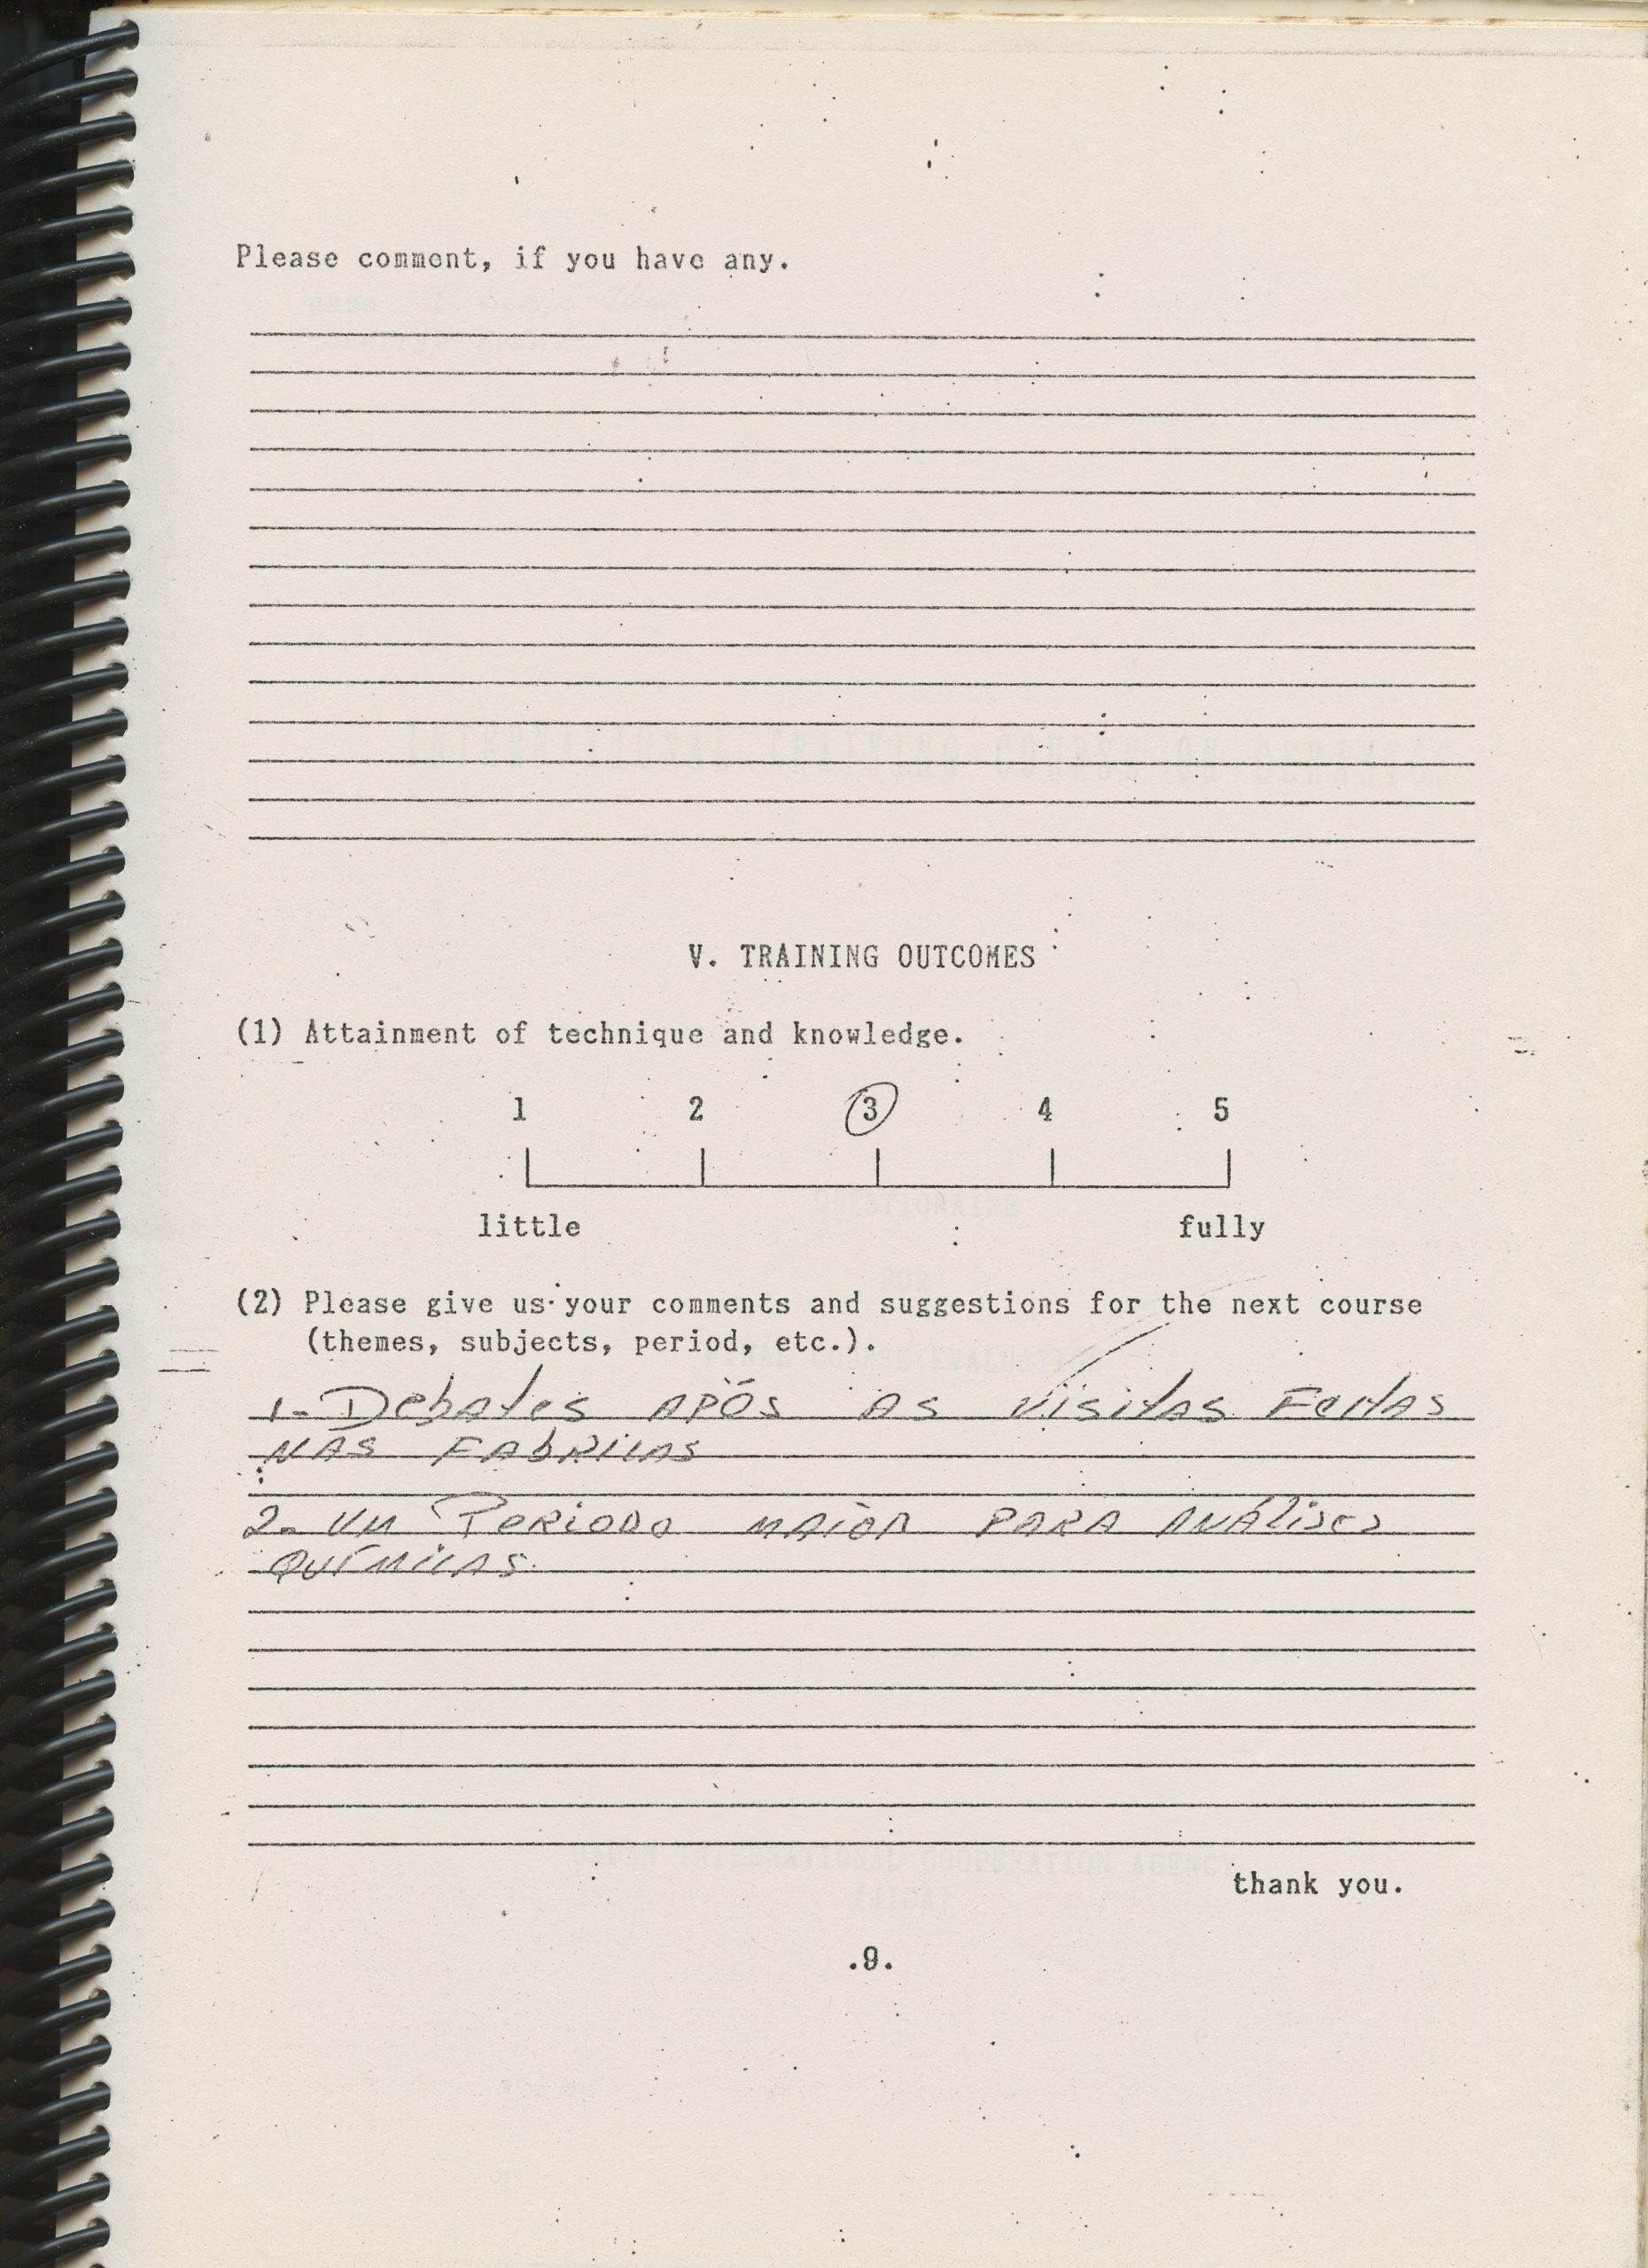 Please comment, if you have any.
V. TRAINING OUTCOMES
(1) Attainment of technique and knowledge.
1 2 3 4 5
little fully
(2) Please give us your comments and suggestions for the next course
(themes, subjects, period, etc.).
1- Debates APÓS AS VISITAS FEITAS
NAS FABRICAS
2- UM PERIODO MAIOR PARA ANÁLISES
QUÍMICAS.
thank you.
.9.